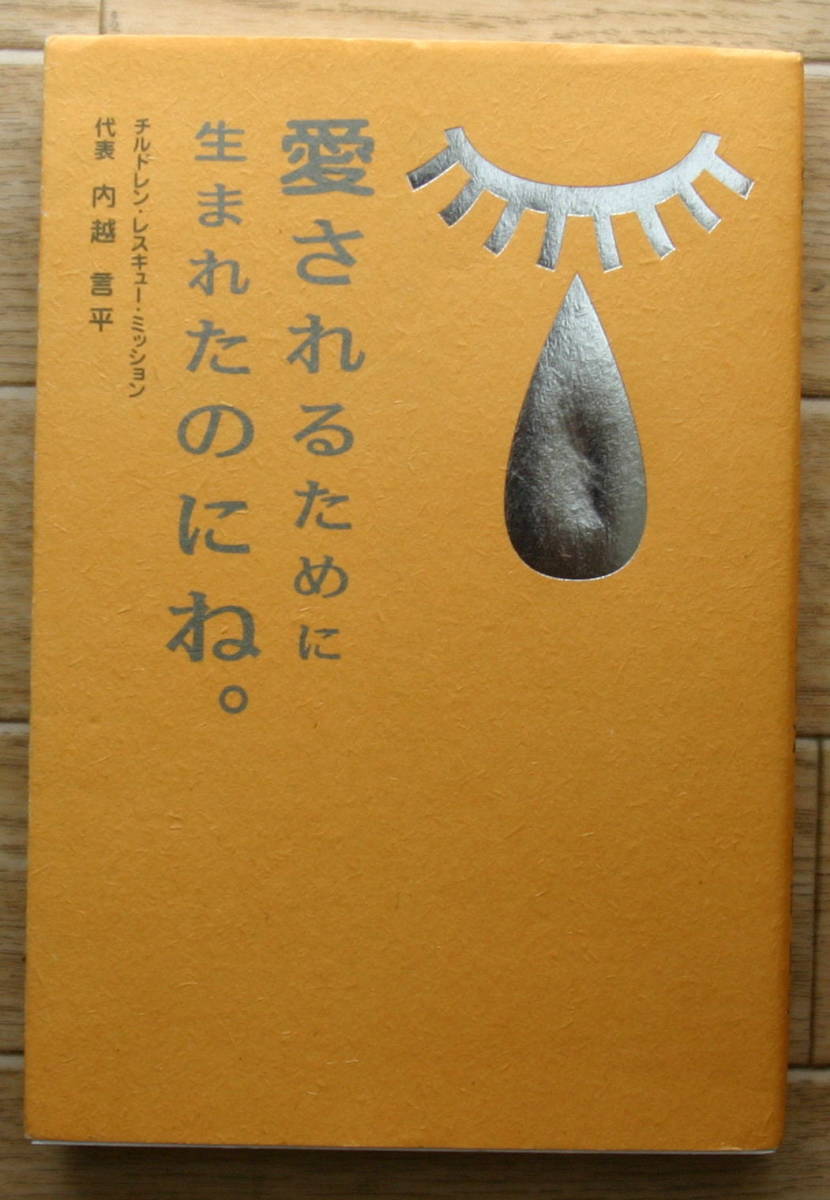 愛されるために
生まれたのにね。
チルドレン・レスキュー・ミッション
代表 内越 言平